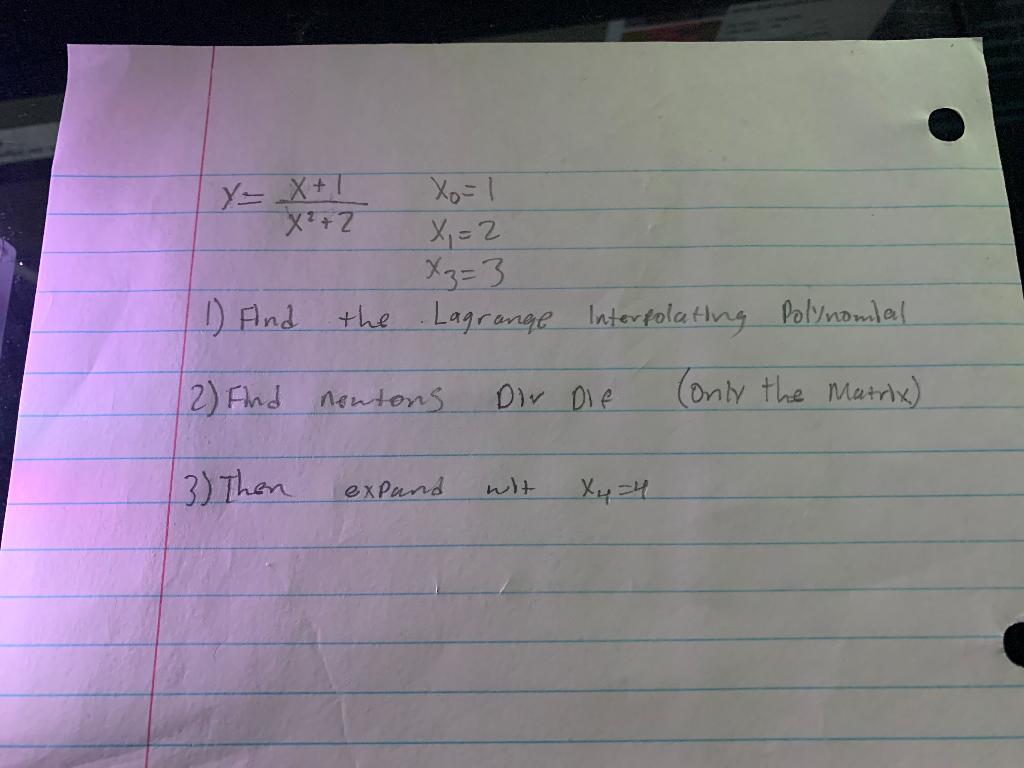 y = x+1 / x²+2 x₀ = 1
x₁ = 2
x₃ = 3
1) Find the Lagrange Interpolating Polynomial
2) Find newtons Div Die (only the Matrix)
3) Then expand wit x₄ = 4